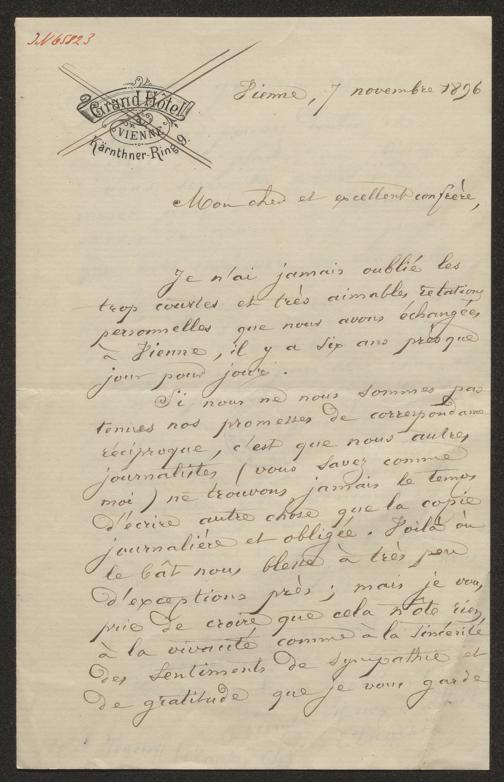 I.N 65823
Grand Hôtel
VIENNE
Kärnthner-Ring 9.
Vienne, 7 novembre 1896
Mon cher et excellent confrère,
Je n'ai jamais oublié les
trop courtes et très aimables relations
personnelles que nous avons échangées
à Vienne, il y a six ans presque
jour pour jour.
Si nous ne nous sommes pas
tenues nos promesses de correspondance
réciproque, c'est que nous autres
journalistes (vous savez comme
moi) ne trouvons jamais le temps
d'écrire autre chose que la copie
journalière et obligée. Voilà où
le bât nous blesse à très peu
d'exceptions près; mais je vous
prie de croire que cela n'ôte rien
à la vivacité comme à la sincérité
des sentiments de sympathie et
de gratitude que je vous garde